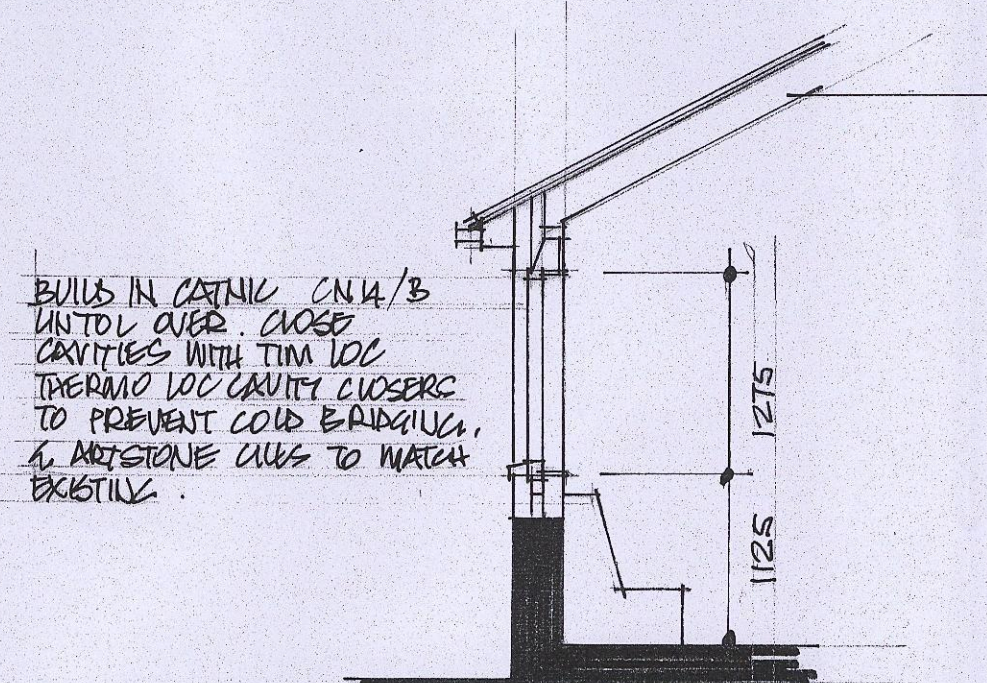 BUILD IN CATNIC CN14/B
LINTOL OVER. CLOSE
CAVITIES WITH TIM LOC
THERMO LOC CAVITY CLOSERS
TO PREVENT COLD BRIDGING.
& ARTSTONE CILLS TO MATCH
EXISTING.
1275
1125